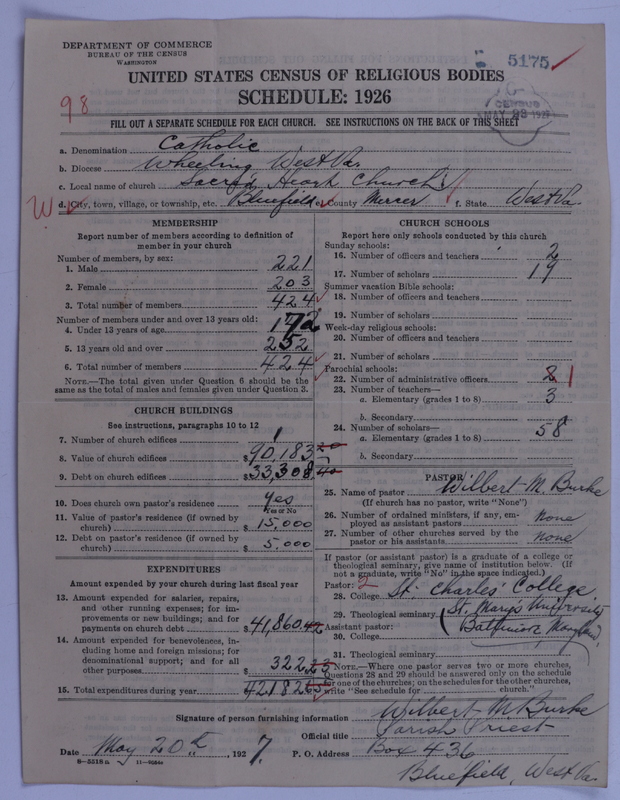 DEPARTMENT OF COMMERCE
BUREAU OF THE CENSUS
WASHINGTON
5175
UNITED STATES CENSUS OF RELIGIOUS BODIES
SCHEDULE: 1926
CENSUS
MAY 23 1927
98
FILL OUT A SEPARATE SCHEDULE FOR EACH CHURCH. SEE INSTRUCTIONS ON THE BACK OF THIS SHEET
a. Denomination Catholic
b. Diocese Wheeling West Va.
c. Local name of church Sacred Heart Church
W d. City, town, village, or township, etc. Bluefield e. County Mercer f. State West Va.
MEMBERSHIP
Report number of members according to definition of member in your church
Number of members, by sex:
1. Male 221
2. Female 203
3. Total number of members 424
Number of members under and over 13 years old:
4. Under 13 years of age 172
5. 13 years old and over 252
6. Total number of members 424
NOTE.—The total given under Question 6 should be the same as the total of males and females given under Question 3.
CHURCH BUILDINGS
See instructions, paragraphs 10 to 12
7. Number of church edifices 1
8. Value of church edifices $90,183
9. Debt on church edifices $33,308.40
10. Does church own pastor's residence Yes
Yes or No
11. Value of pastor's residence (if owned by church) $15,000
12. Debt on pastor's residence (if owned by church) $5,000
EXPENDITURES
Amount expended by your church during last fiscal year
13. Amount expended for salaries, repairs, and other running expenses; for improvements or new buildings; and for payments on church debt $41,860.42
14. Amount expended for benevolences, including home and foreign missions; for denominational support; and for all other purposes $322.25
15. Total expenditures during year 42182
CHURCH SCHOOLS
Report here only schools conducted by this church
Sunday schools:
16. Number of officers and teachers 2
17. Number of scholars 19
Summer vacation Bible schools:
18. Number of officers and teachers
19. Number of scholars
Week-day religious schools:
20. Number of officers and teachers
21. Number of scholars
Parochial schools:
22. Number of administrative officers 2 1
23. Number of teachers—
a. Elementary (grades 1 to 8) 3
b. Secondary
24. Number of scholars—
a. Elementary (grades 1 to 8) 58
b. Secondary
PASTOR
25. Name of pastor Wilbert M. Burke
(If church has no pastor, write "None")
26. Number of ordained ministers, if any, employed as assistant pastors none
27. Number of other churches served by the pastor or his assistants none
If pastor (or assistant pastor) is a graduate of a college or theological seminary, give name of institution below. (If not a graduate, write "No" in the space indicated.)
Pastor: 2
28. College St. Charles' College
29. Theological seminary St. Mary's University
Assistant pastor: Baltimore, Maryland
30. College
31. Theological seminary
NOTE.—Where one pastor serves two or more churches, Questions 28 and 29 should be answered only on the schedule for one of the churches; on the schedules for the other churches, write "See schedule for church."
Signature of person furnishing information Wilbert M Burke
Official title Parish Priest
Date May 20th, 1927. P. O. Address Box 436
8-5518a 11-9054a
Bluefield, West Va.